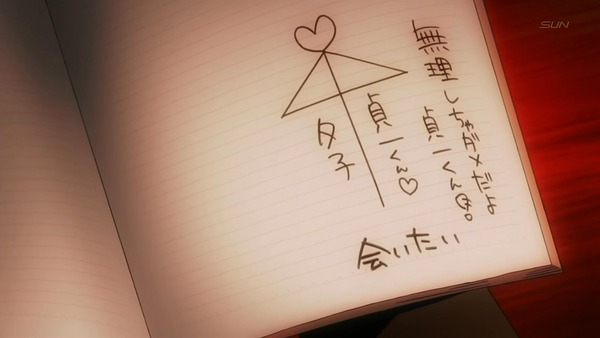 無理しちゃダメだよ
貞一くん
貞一くん♡
夕子
会いたい
SUN